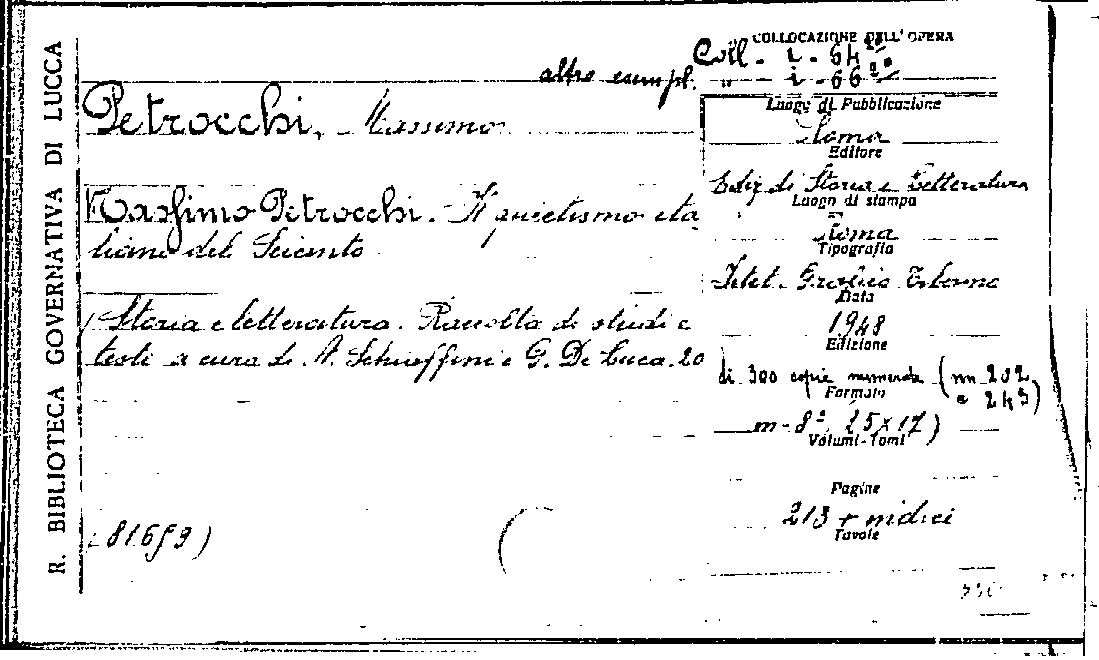 R. BIBLIOTECA GOVERNATIVA DI LUCCA
COLLOCAZIONE DELL'OPERA
Coll. i. 64
altro esempl. " i. 66
Petrocchi, Massimo
Massimo Petrocchi. Il quietismo ita
liano del Seicento
(Storia e letteratura. Raccolta di studi e
testi a cura di A. Schiaffini e G. De Luca. 20
(81659)
Luogo di Pubblicazione
Roma
Editore
Ediz. di Storia e Letteratura
Luogo di stampa
Roma
Tipografia
Istit. Grafico Tiberino
Data
1948
Edizione
di 300 copie numerate (nn 202
e 243)
Formato
in-8° 25x17)
Volumi-Tomi
Pagine
213 + indici
Tavole